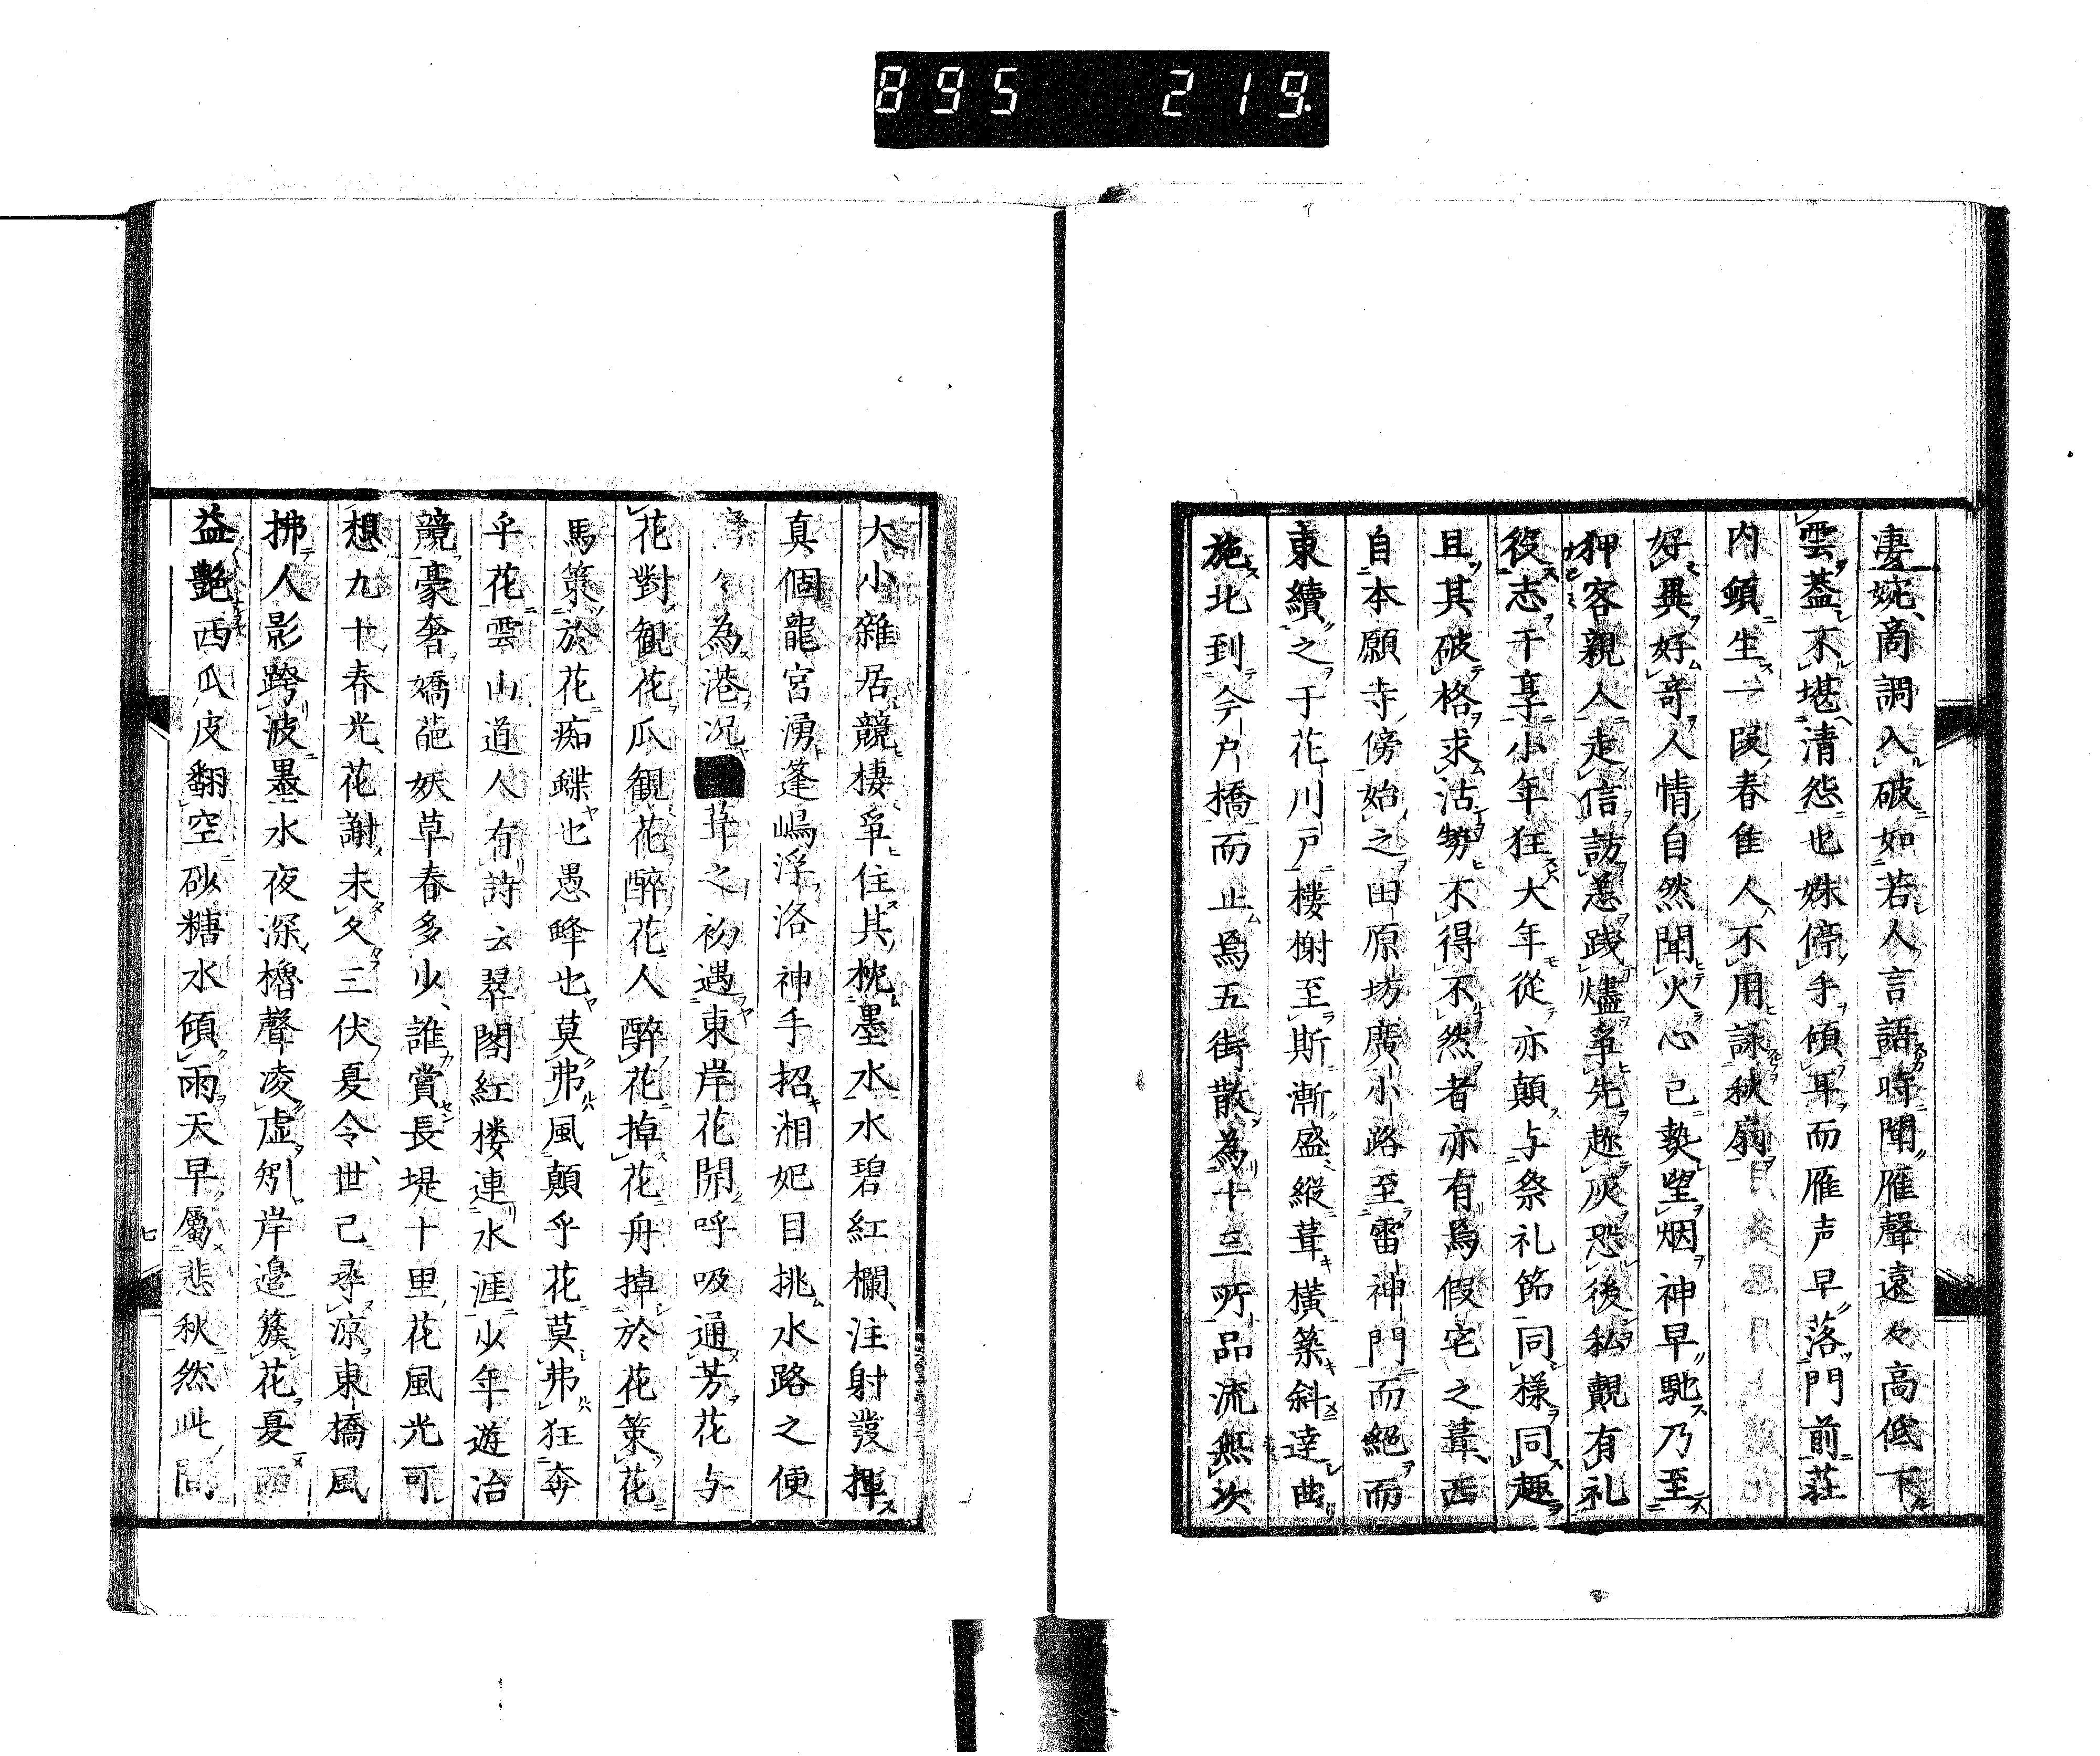 895 219
凄婉、商調入破如若人言語時聞雁聲遠々高低下
雲蓋不堪清怨也姝停手傾耳而雁声早落門前荘
内頓生一段春隹人不用詠秋扇
好異好奇人情自然聞火心已𤍠望烟神早馳乃至
狎客親人走信訪恙践燼爭先趂灰恐後私覿有礼
役志于享小年狂大年從亦顛与祭礼節同様同趣
且其破格求沽勢不得不然者亦有焉假宅之葺、西
自本願寺傍始之田原坊廣小路至雷神門而絕而
東續之于花川戸樓榭至斯漸盛縦葺横築斜達曲
施北到今戸橋而止為五街散為十三所品流無汝
大小雜居競棲爭住其枕墨水水碧紅欄、注射發揮
真個龍宮湧篷嶋浮洛神手招湘妃目挑水路之便
々為港况 葺之初遇東岸花開呼吸通芳花与
花對観花瓜観花醉花人醉花掉花舟掉於花策花
馬策於花痴蝶也愚蜂也莫弗風顛乎花莫弗狂奔
乎花雲山道人有詩云翠閣紅楼連水涯少年遊冶
競豪奢嬌葩妖草春多少、誰賞長堤十里花風光可
想九十春光、花謝未久三伏夏令、世已尋凉東橋風
拂人影跨波墨水夜深櫓聲凌虚矧岸邊簇花夏而
益艶西瓜皮翻空砂糖水傾雨天早屬悲秋然此間
七